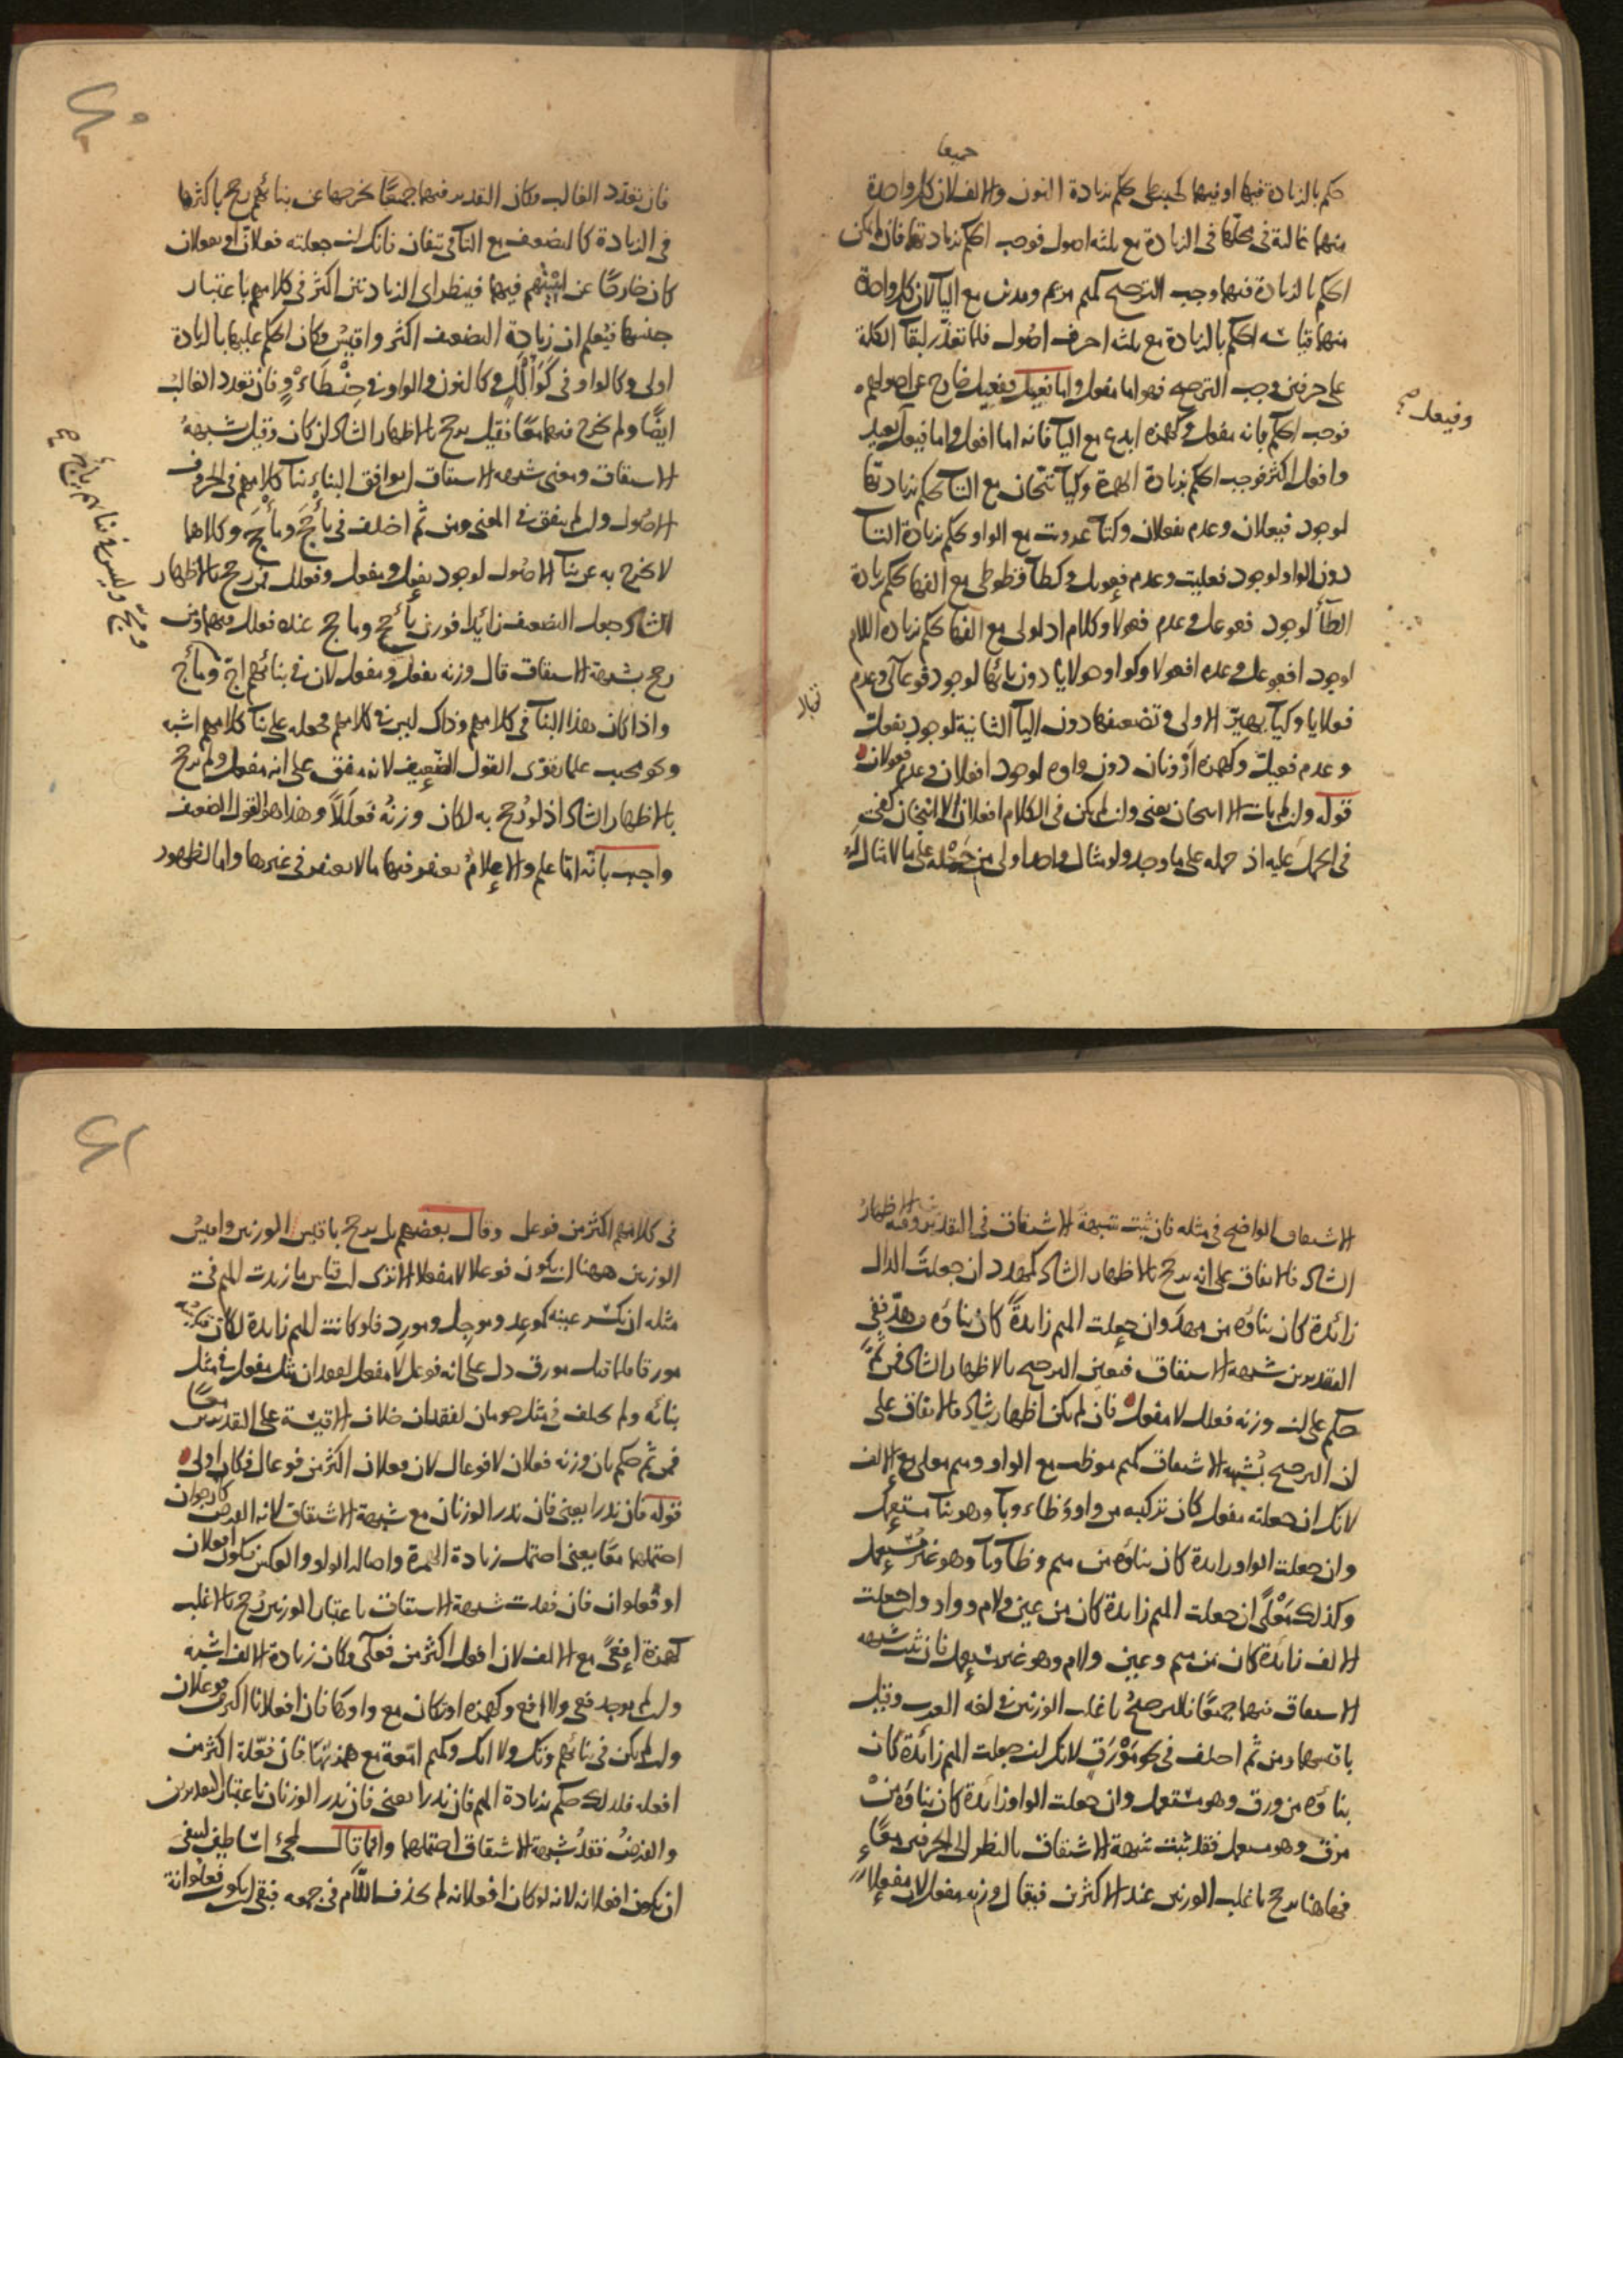 جميعا
حكم بالزيادة فيها او فيهما كحبنطى حكم بزيادة النون والالف لان كل واحدة
منهما غالبة في محلها في الزيادة مع ثلثة اصول فوجب الحكم بزيادتهما فان لم يمكن
الحكم بالزيادة فيهما وجب الترجيح كميم مريم ومدين مع اليآ لان كل واحدة
منهما قياسه الحكم بالزيادة مع ثلثه احرف اصول فلما تعذر لبقآ الكلمة
على حرفين وجب الترجيح فهو اما مفعل واما فعيل وفعيل خارج عن اصولهم
وفيعل صح
فوجب الحكم بانه مفعل وكهمزة ايدع مع اليآ فانه اما افعل واما فيعل
وافعل اكثر فوجب الحكم بزيادة الهمزة وكيآ تيحان مع التآ حكم بزيادتها
لوجود فيعلان وعدم تفعلان وكتآ عزويت مع الواو يحكم بزيادة التآ
دون الواو لوجود فعليت وعدم فعويل وكطآ قطوطى مع الفها يحكم بزيادة
الطآ لوجود فعوعل وعدم فعولا وكلام ادلولى مع الفها حكم بزيادة اللام
لوجود افعوعل وعدم افعولا وكواو حولايا دون يائها لوجود فوعالى وعدم
فعلايا وكيآ يهير الاولى وتضعيفها دون اليآ الثانية لوجود يفعل
وعدم فعيل وكهمزه ارونان دون واوه لوجود افعلان وعدم فعولان
قوله وان لم يات الا انبجان يعنى وان لم يكن في الكلام افعلان الا انبجان كفى
في الحمل عليه اذ حمله على ما وجد ولو مثال واحد اولى من حمله على ما لا مثال له
فان تعدد الغالب وكان التقدير فيهما جميعا يخرجها عن بنائهم رجح باكثرها
في الزيادة كالتضعيف مع التآ في تئفان فانك ان جعلته فعلانّ او تفعلان
كان خارجًا عن ابنيتهم فيهما فينظر اى الزيادتين اكثر في كلامهم باعتبار
جنسها فيُعلم ان زيادة التضعيف اكثر واقيسُ وكان الحكم عليها بالزيادة
اولى وكالواو في كَوَأْلَلٍ وكالنون والواو في حِنْطَاْوٍ فان تعدد الغالبُ
ايضًا ولم يخرج فيهما معًا فقيل يرجح بالاظهار الشاذ ان كان وقيل بشبهةُ
الاشتقاق ومعنى شبهه الاشتقاق ان يوافق البناء بنآ كلامهم في الحروف
الاصُول وان لم يتفق في المعنى ومن ثَّم اختلف في يأْجَجَ ومأْجَجَ وكلاها
لا يخرج به عن بنآ الاصُول لوجود يفعل ومفعل وفعلل فمن رجح بالاظهار
الشاذ جعل التضعيف زائدا فوزن يأجج ومأجج عنده فعلل فيهما ومن
رجح بشبهة الاشتقاق قال وزنه يفعل ومفعل لان في بنائهم اجّ ومأج
واذا كان هذا البنآ في كلامهم وذاك ليس في كلامهم فحمله على بنآ كلامهم اشبه
ونحو محبب علما يقوى القول الضعيف لانه متفق على انه مفعل ولم يرجح
بالاظهار الشاذ اذ لو رُجح به لكان وزنهُ فَعلَلاً وهذا هو القول الضعيف
واجيب بانّه امّا علم والاعلامُ يغتفر فيها ما لا يغتفر في غيرها واما لظهور
الاشتقاق الواضح في مثله فان ثبت شبهةُ الاشتقاق في التقديرين وفيه الاظهارُ
الشاذ فالاتفاق على انه يرجح بالاظهار الشاذ كمهدد ان جعلت الدال
زائدة كان بناؤه من مهدَ وان جعلت الميم زايدةً كان بناؤه من هدّ ففى
التقديرين شبهة الاشتقاق فتعين الترجيح بالاظهار الشاذ فمن ثمَّ
حكم على ان وزنه فعلل لا مفعل فان لم يكن اظهار شاذ فالاتفاق على
ان الترجيح بشُبهة الاشتقاق كميم موظب مع الواو وميم معلى مع الالف
لانك ان جعلته مفعل كان تركيبه من واو وظاء وبآ وهو بنآ مستعمل
وان جعلت الواو زايدة كان بناؤه من ميم وظآ وبآ وهو غير مُستعمل
وكذلك مَعْلَى ان جعلت الميم زايدة كان من عين ولام وواو وان جعلت
الالف زائدة كان من ميم وعين ولام وهو غير مستعمل فان ثبت شبهه
الاشتقاق فيهما جميعًا فالترجيحُ باغلب الوزنين في لغه العرب وقيل
باقيسها ومن ثَّم اختلف في نحو مَوْرَقٍ لانك ان جعلت الميم زائدة كان
بناؤه من ورق وهو مستعمل وان جعلت الواو زائدة كان بناؤه منْ
مرق وهو مستعمل فقد ثبت شبهة الاشتقاق بالنظر الى الحرفين معًا
فههاهنا يرجح باغلب الوزنين عند الاكثرين فيقال وزنه مفعل لان مفعلاً
في كلامهم اكثر من فوعل وقال بعضهم بل يرجح باقيس الوزنين واقيسُ
الوزنين ههنا ان يكون فوعلا لا مفعلا الا ترى ان قياس ما زيدت الميم في
مثله ان تكسر عينه كموعِد وموجِل ومورِد فلو كانت الميم زايدة لكان
مورقا فلما قيل مورق دل على انه فوعل لا مفعل لفقدان مثل مفعل في مثل
بنائه ولم يختلف في مثل حومان لفقدان خلاف الاقيسة على التقديرين معًا
فمن ثَّم حكم بان وزنه فعلان لا فوعال لان فعلان اكثر من فوعال فكان اولى
قوله فان ندرا يعنى فان ندر الوزنان مع شبهة الاشتقاق لانه الغرض كارجوان
احتملهما معًا يعنى احتمل زيادة الهمزة واصالة الواو والعكس فيكون افعلان
او فعلوان فان فقدت شبهة الاشتقاق باعتبار الوزنين رُجح بالاغلب
كهمزة اِفعًى مع الالف لان افعل اكثر من فعلى وكان زيادة الالف اشبه
وان لم يوجد فعى ولا افع وكهمزه اوتكان مع واوها فان افعلانا اكثر من فوعلان
وان لم يكن في بنائهم وتك ولا اتك وكميم امّعة مع همزتها فان فعّلة اكثر من
افعله فلذلك حكم بزيادة الميم فان ندرا يعنى فان ندر الوزنان باعتبار التقديرين
والغرضُ فقدُ شبهة الاشتقاق احتملهما وانما قال لمجئ اساطين ليبقى
ان يكون افعلانه لانه لو كان افعلانه لم يحذف اللام في جمعه فبقى ان يكون فعلوانة